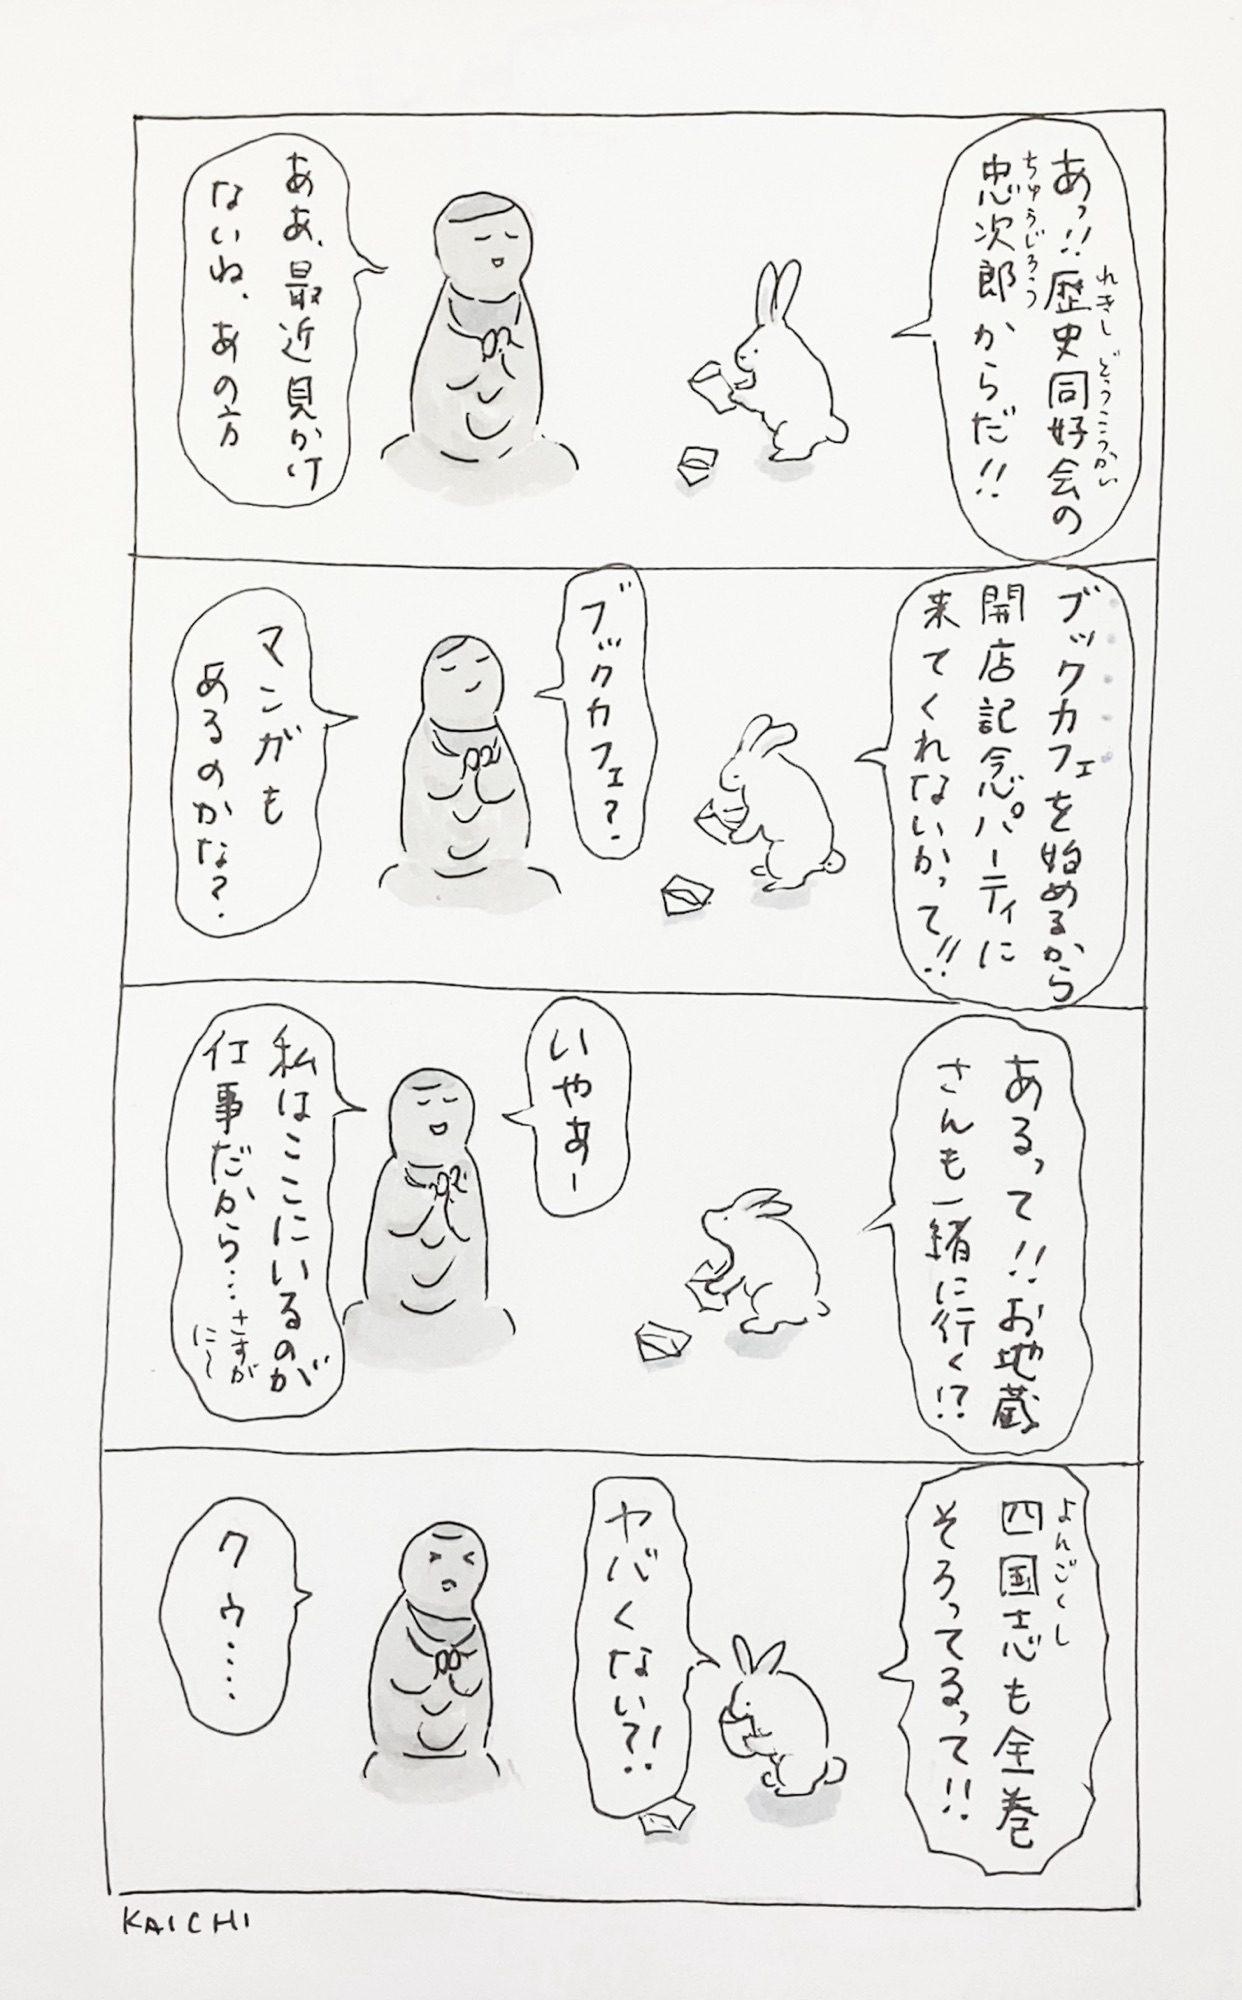 あっ!!歴史同好会の
れきし どうこうかい
忠次郎からだ!!
ちゅうじろう
ああ、最近見かけ
ないね、あの方
ブックカフェを始めるから
開店記念パーティに
来てくれないかって!!
ブックカフェ?
マンガも
あるのかな?
あるって!!お地蔵
さんも一緒に行く!?
いやあー
私はここにいるのが
仕事だから…さすが
に〜
四国志も全巻
よんごくし
そろってるって!!
ヤバくない?!
クゥ……
KAICHI